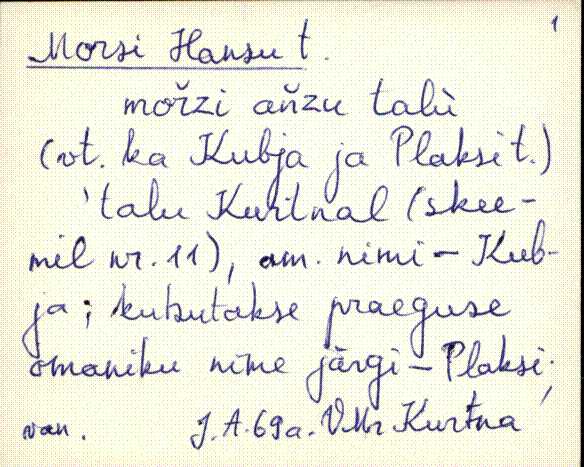 1
Morsi Hansu t.
morži ańzu talù
(vt. ka Kubja ja Plaksi t.)
'talu Kurtnal (skee-
mil nr. 11), am. nimi - Kub-
ja; kutsutakse praeguse
omaniku nime järgi - Plaksi;
van. J. A. 69a. VMr Kurtna